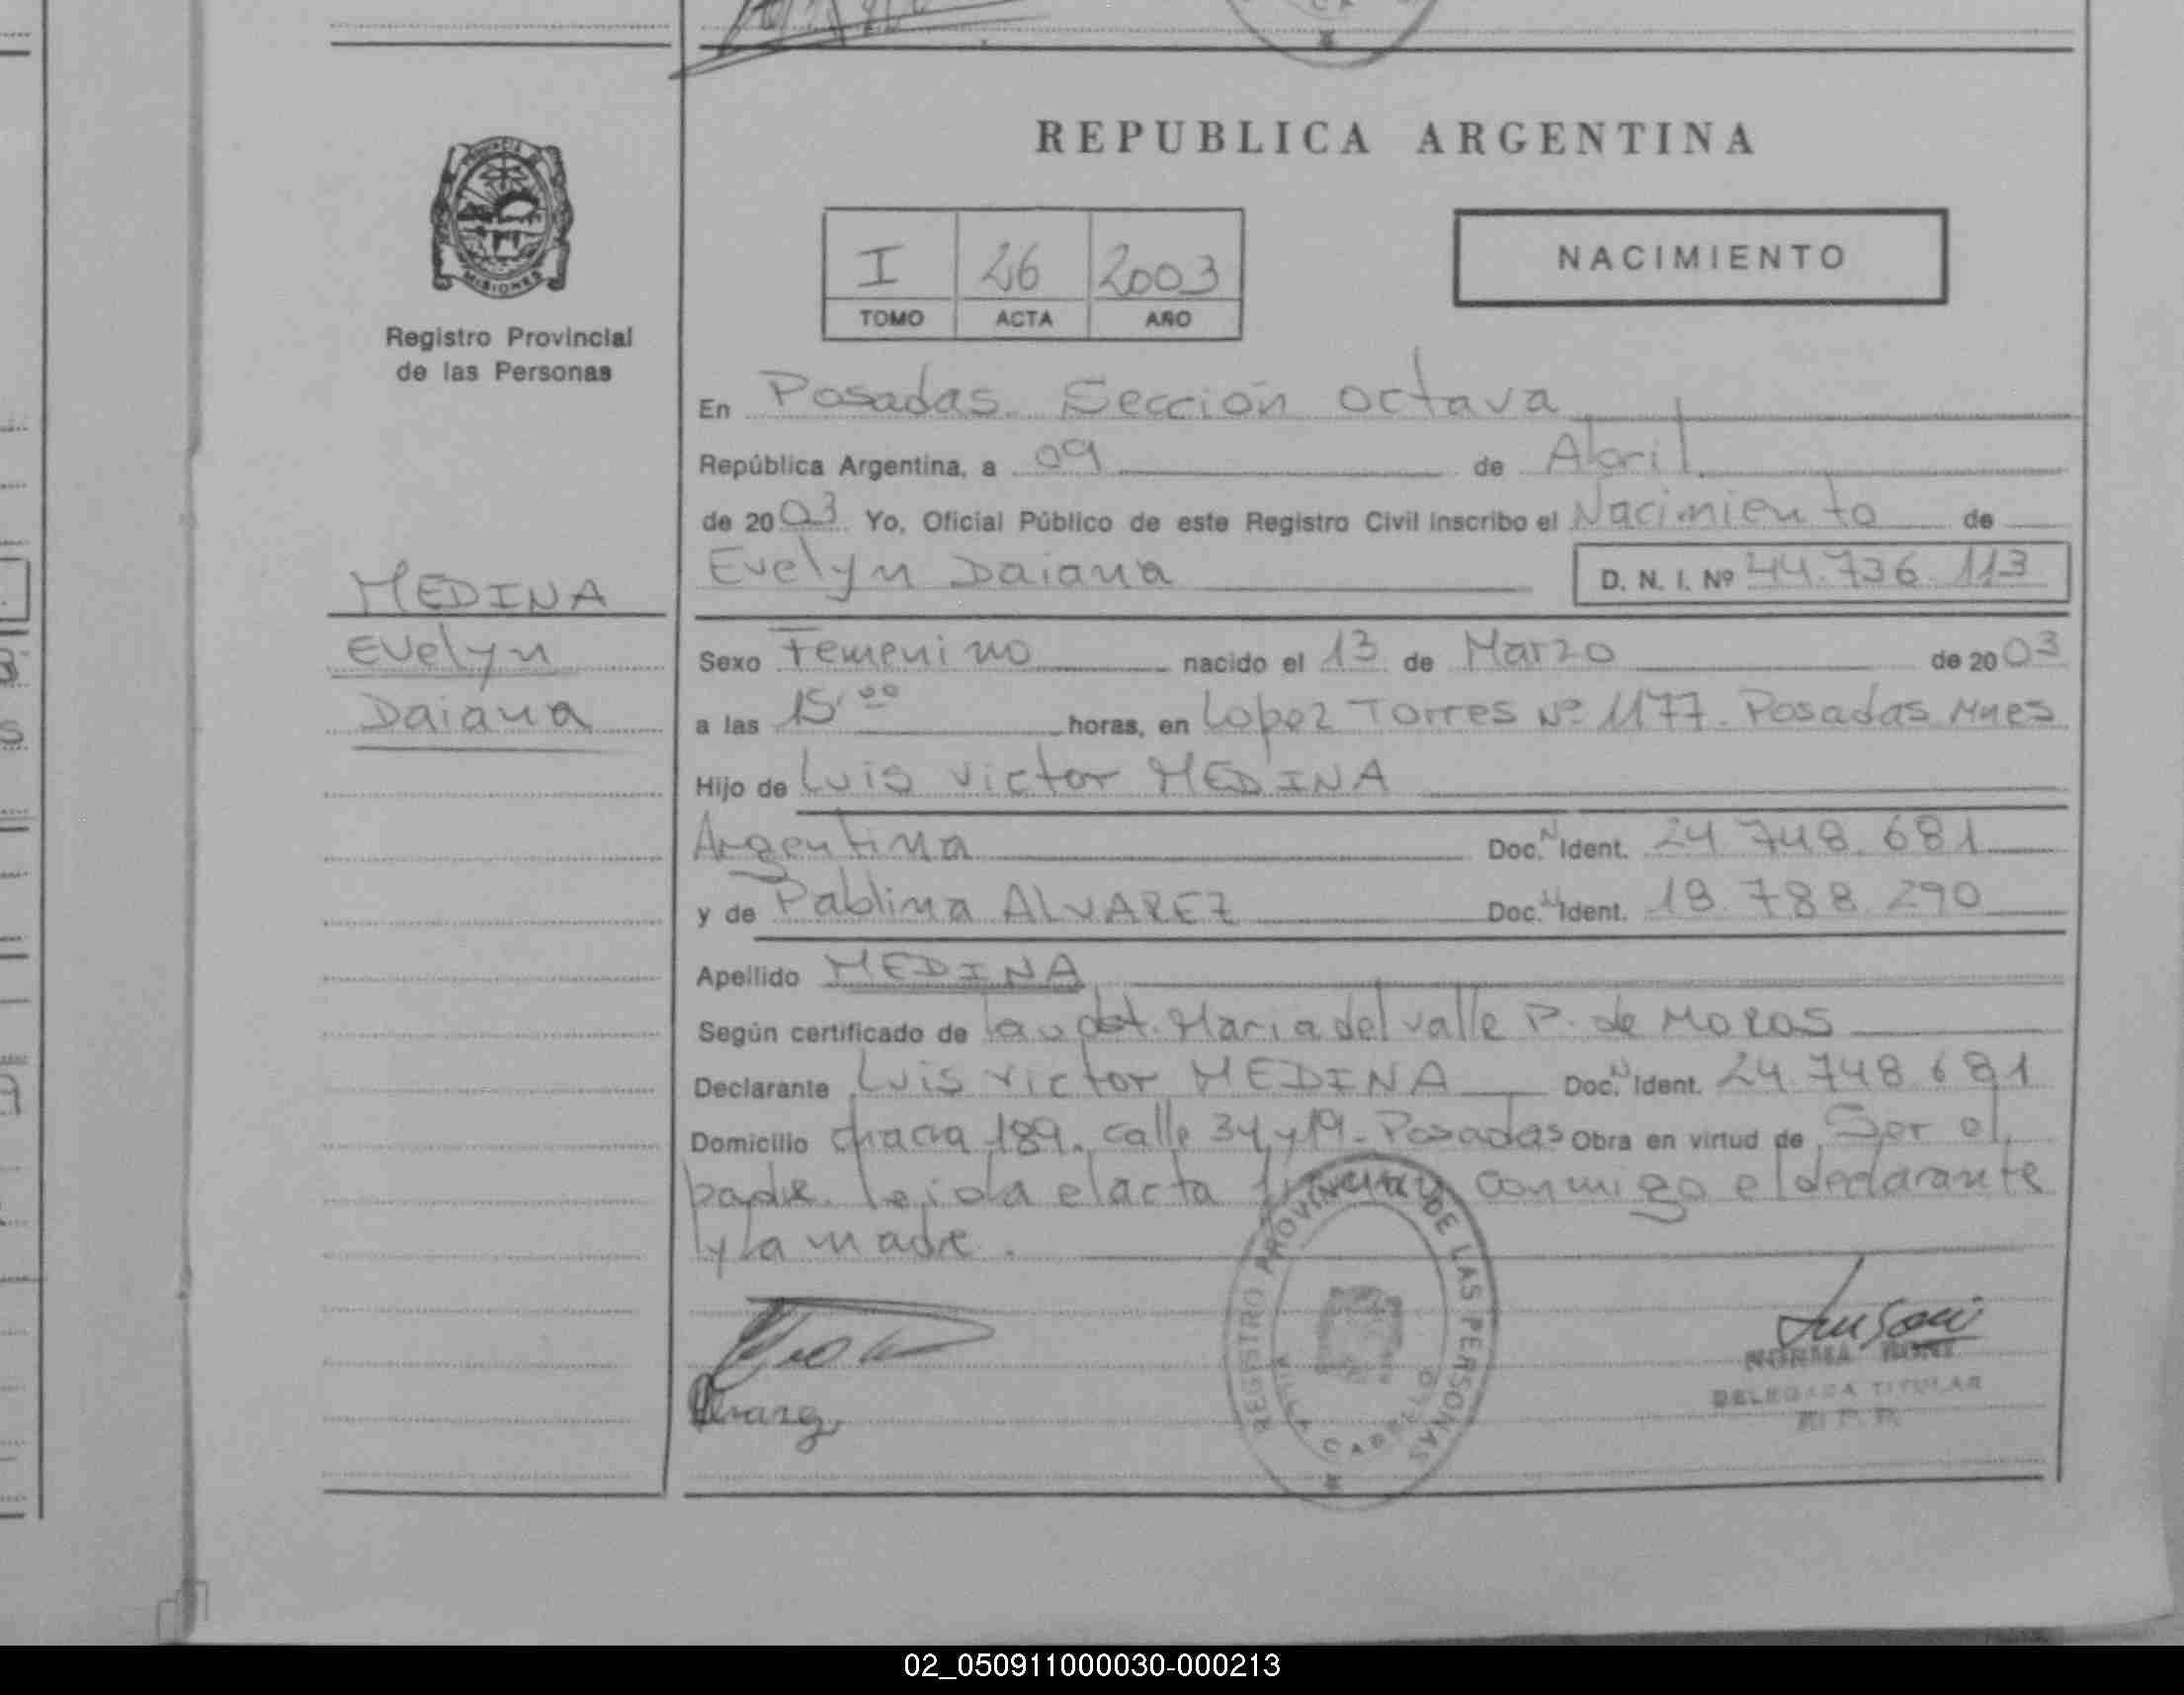 REPUBLICA ARGENTINA
PROVINCIA DE
MISIONES
Registro Provincial
de las Personas
I 26 2003
TOMO ACTA AÑO
NACIMIENTO
En Posadas. Sección octava
República Argentina, a 09 de Abril
de 2003 Yo, Oficial Público de este Registro Civil inscribo el Nacimiento de
MEDINA
Evelyn
Daiana
Evelyn Daiana D. N. I. Nº 44.736.113
Sexo Femenino nacido el 13 de Marzo de 2003
a las 15,00 horas, en Lopez Torres Nº 1177. Posadas Mnes
Hijo de Luis Victor MEDINA
Argentina Doc. N Ident. 24.748.681
y de Pablina ALVAREZ Doc. N Ident. 18.788.290
Apellido MEDINA
Según certificado de la obst. Maria del Valle P. de
Declarante Luis Victor MEDINA Doc. N Ident. 24.748.681
Domicilio chacra 189. calle 34 y 19 - Posadas Obra en virtud de Ser el
padre. leida el acta conmigo el declarante
y la madre.
REGISTRO PROVINCIAL DE LAS PERSONAS
VILLA CABELLO
NORMA
DELEGADA TITULAR
02_050911000030-000213